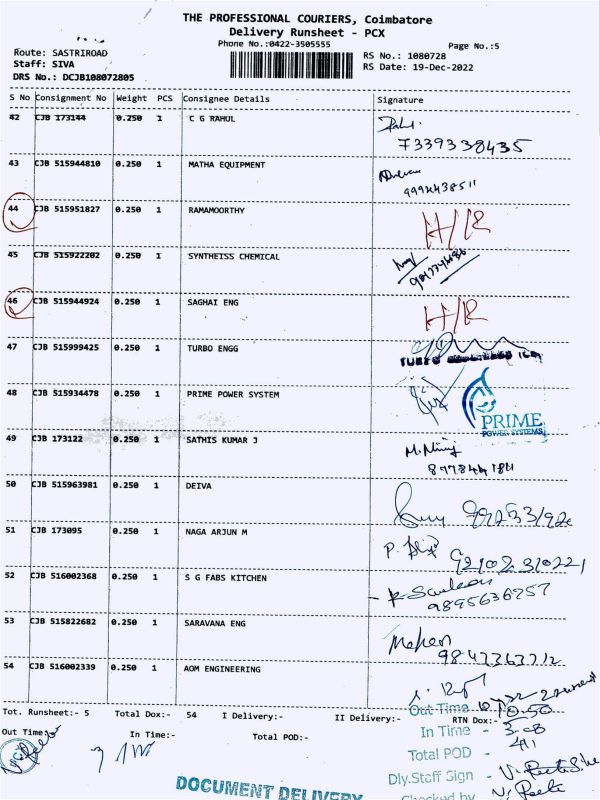 THE PROFESSIONAL COURIERS, Coimbatore
Delivery Runsheet - PCX
Phone No.:0422-3505555
Page No.:5
Route: SASTRIROAD
Staff: SIVA
DRS No.: DCJB108072805
RS No.: 1080728
RS Date: 19-Dec-2022
S No Consignment No Weight PCS Consignee Details Signature
42 CJB 173144 0.250 1 C G RAHUL
7339338435
43 CJB 515944810 0.250 1 MATHA EQUIPMENT
44 CJB 515951827 0.250 1 RAMAMOORTHY
45 CJB 515922202 0.250 1 SYNTHEISS CHEMICAL
46 CJB 515944924 0.250 1 SAGHAI ENG
47 CJB 515999425 0.250 1 TURBO ENGG
TURBO
48 CJB 515934478 0.250 1 PRIME POWER SYSTEM
PRIME
POWER SYSTEMS
49 CJB 173122 0.250 1 SATHIS KUMAR J
50 CJB 515963981 0.250 1 DEIVA
51 CJB 173095 0.250 1 NAGA ARJUN M
52 CJB 516002368 0.250 1 S G FABS KITCHEN
9895636757
53 CJB 515822682 0.250 1 SARAVANA ENG
54 CJB 516002339 0.250 1 AOM ENGINEERING
Tot. Runsheet:- 5 Total Dox:- 54 I Delivery:- II Delivery:- RTN Dox:-
Out Time:- In Time:- Total POD:-
Out Time 10.50
In Time -
Total POD -
Dly.Staff Sign -
Checked by
DOCUMENT DELIVERY